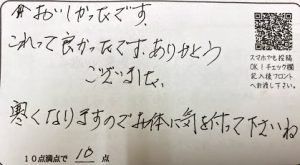 食おいしかったです。
これって良かったです。ありがとう
ございました。
寒くなりますのでお体に気を付って下さいね
10点満点で 10 点
スマホでも投稿
OK！チェック欄
記入後フロント
へお渡し下さい。